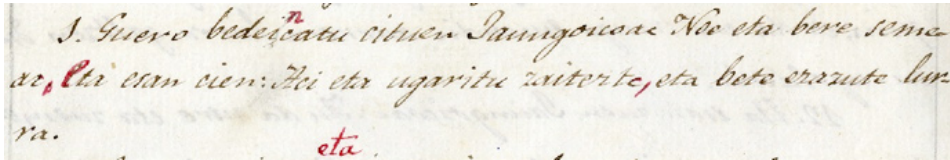 1. Guero bedeincatu cituen Jaungoicoac Noe eta bere seme-
ac, eta esan cien: Aci eta ugaritu zaitezte, eta bete ezazute lur-
ra.
eta